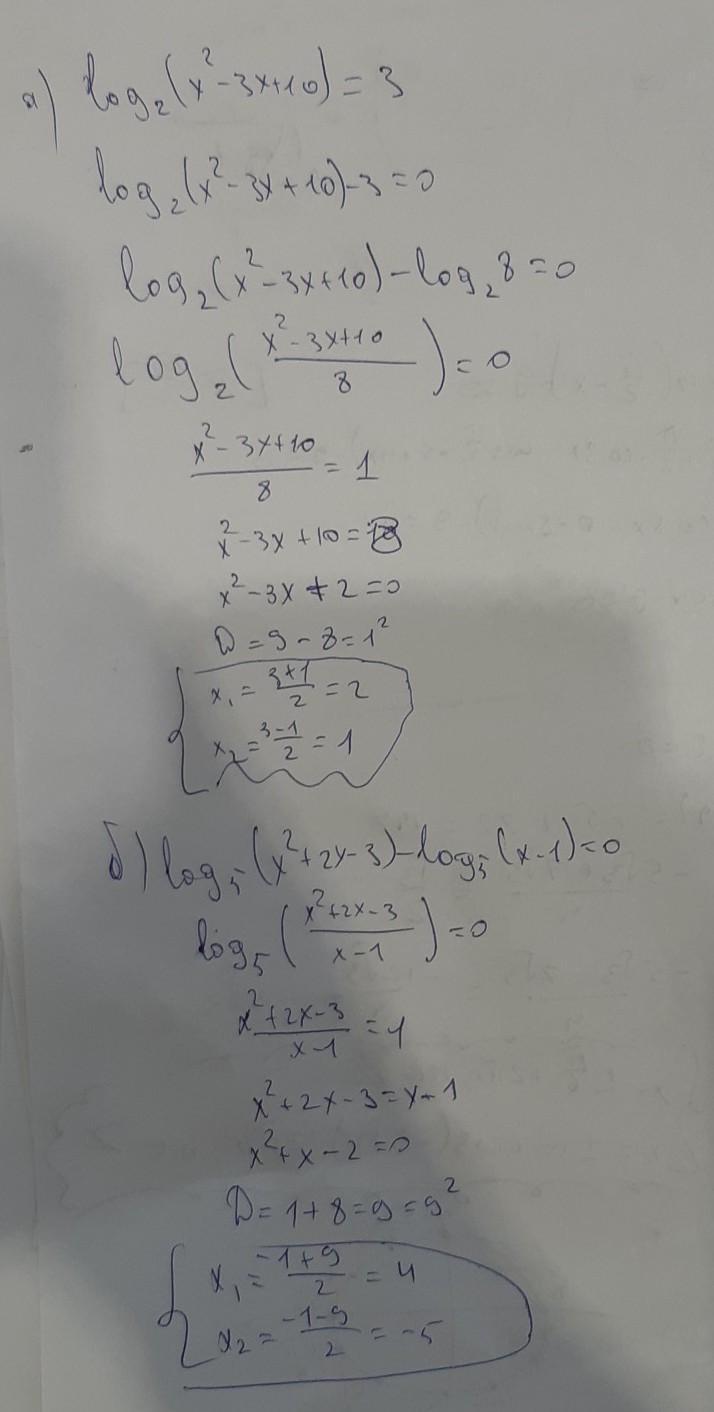 а) log₂(x²-3x+10)=3
log₂(x²-3x+10)-3=0
log₂(x²-3x+10)-log₂8=0
log₂((x²-3x+10)/8)=0
(x²-3x+10)/8=1
x²-3x+10=8
x²-3x+2=0
D=9-8=1²
x₁=(3+1)/2=2
x₂=(3-1)/2=1
б) log₅(x²+2x-3)-log₅(x-1)=0
log₅((x²+2x-3)/(x-1))=0
(x²+2x-3)/(x-1)=1
x²+2x-3=x-1
x²+x-2=0
D=1+8=9=9²
x₁=(-1+9)/2=4
x₂=(-1-9)/2=-5